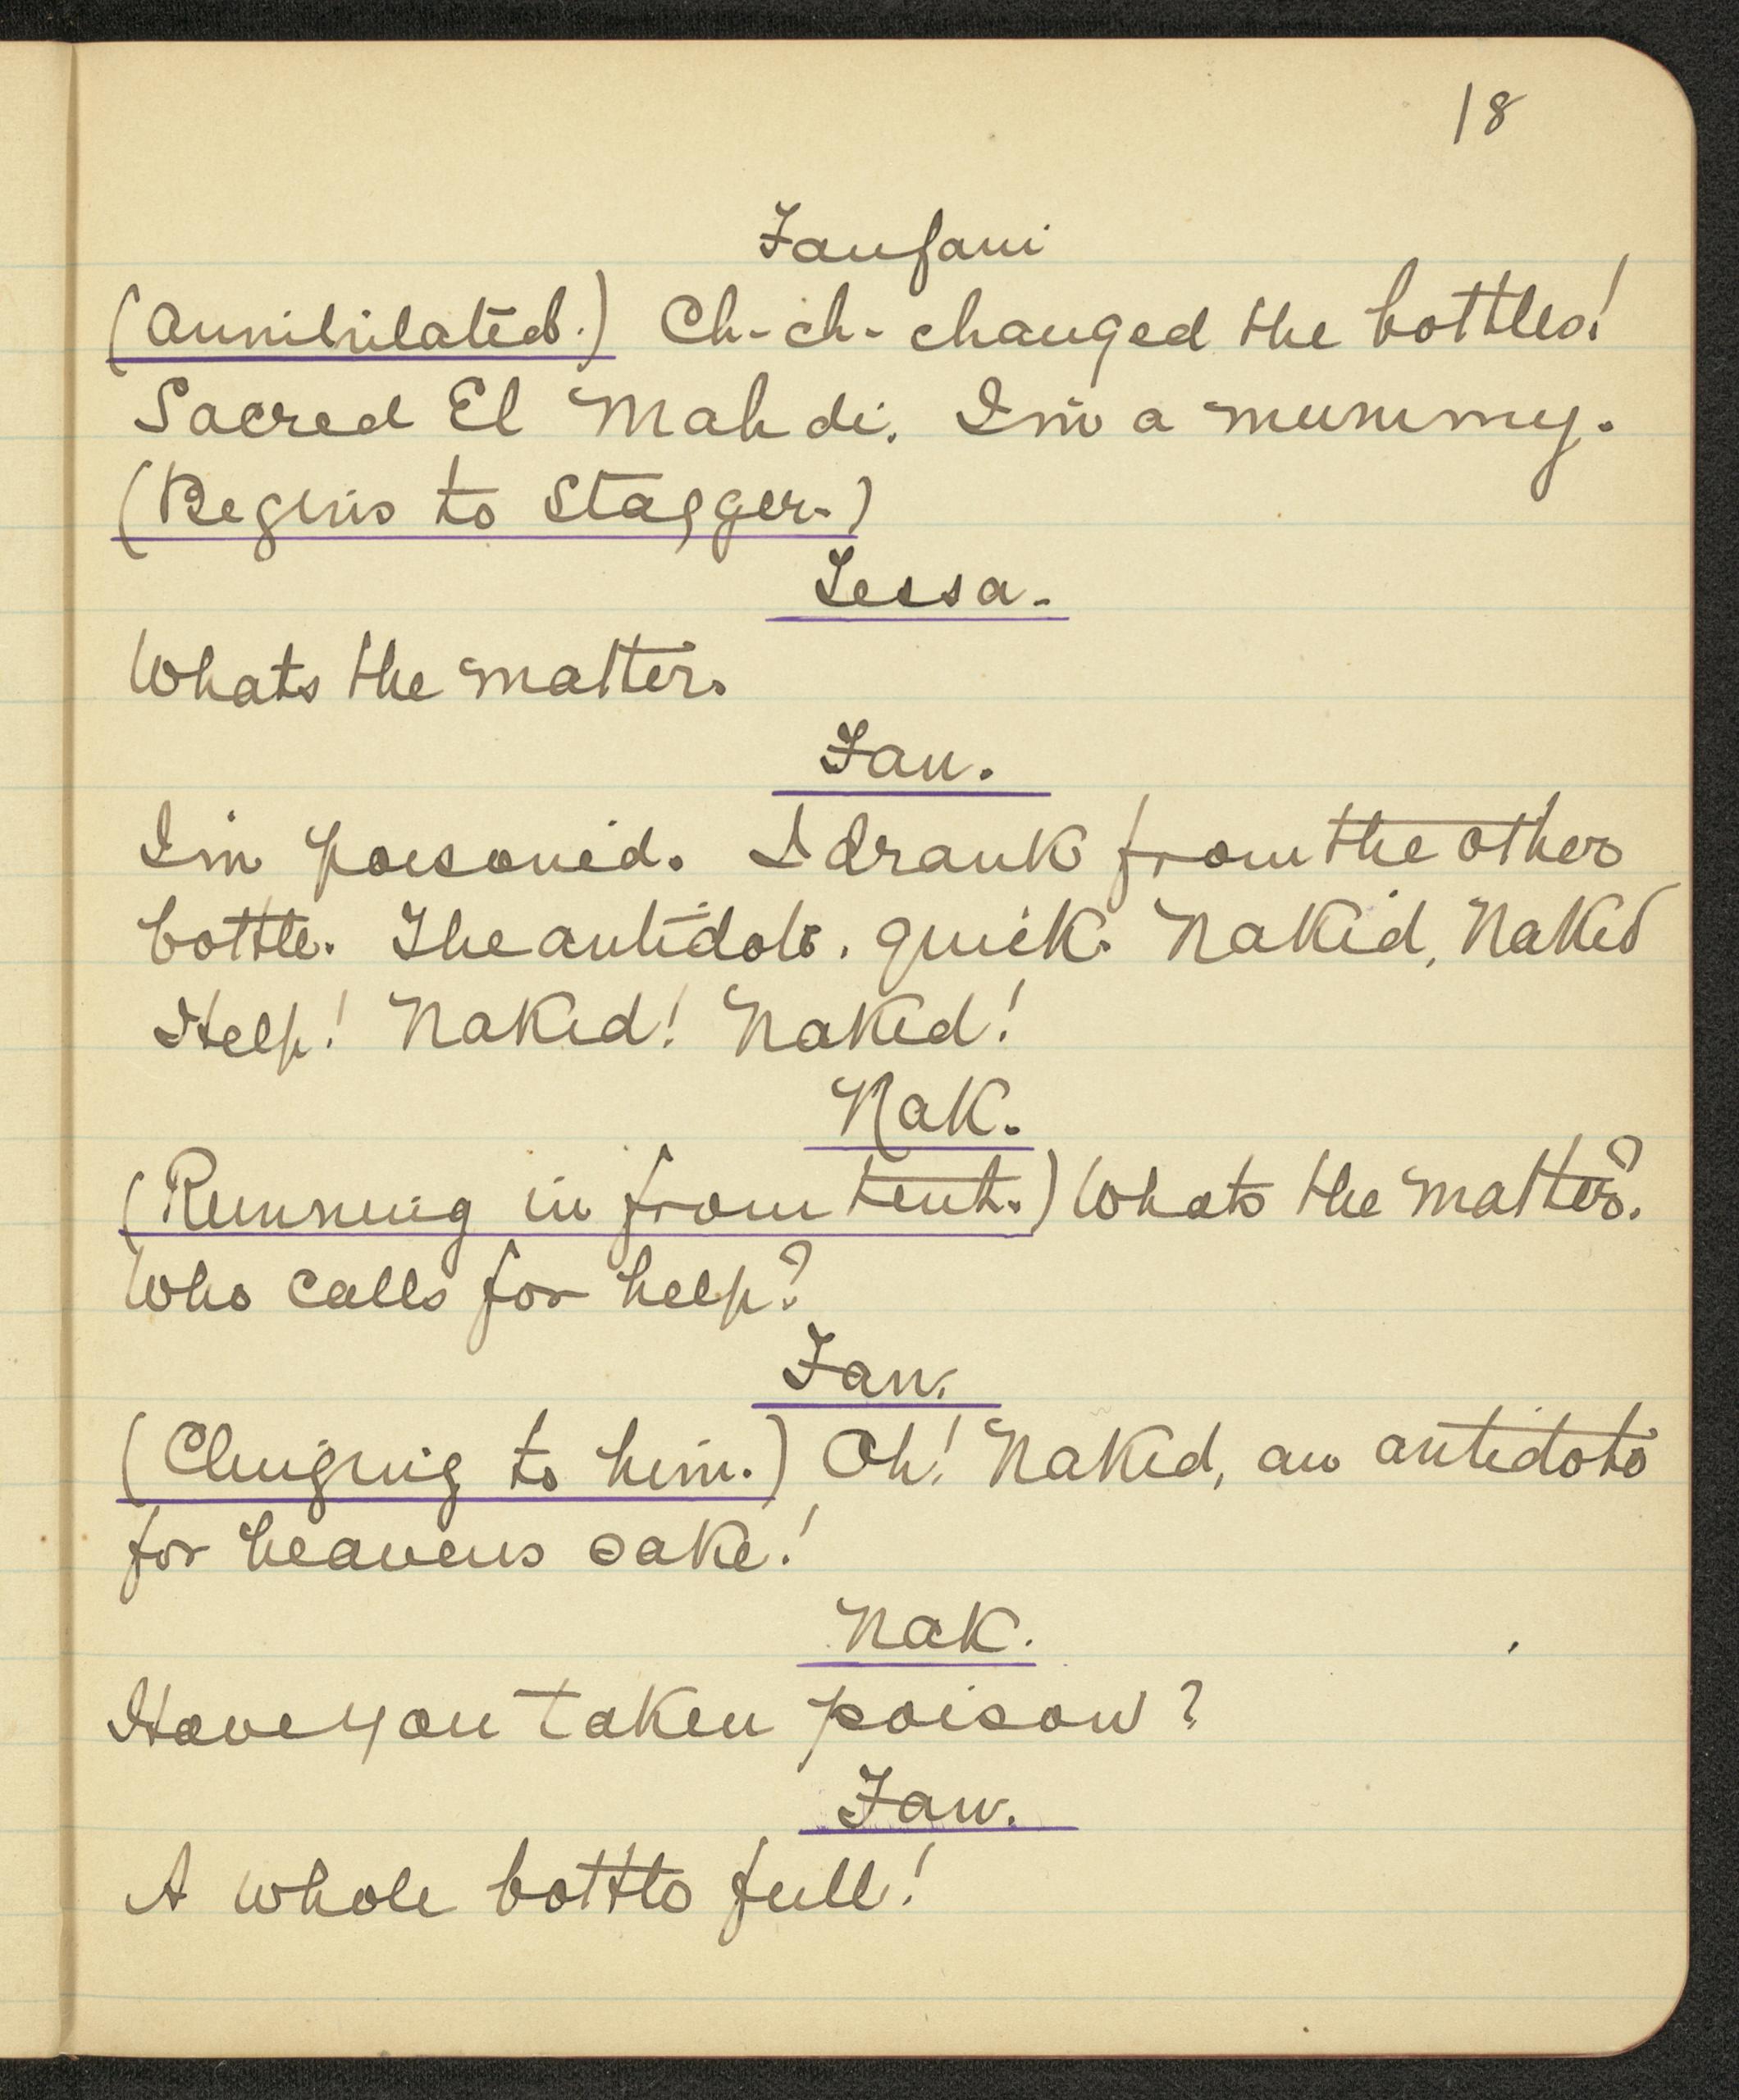 18
Fanfani
(Annihilated.) Ch-ch-changed the bottles!
Sacred El Mahdi. I'm a mummy.
(Begins to stagger.)
Tessa.
Whats the matter.
Fan.
I'm poisoned. I drank from the other
bottle. The antidote. quick. Naked, Naked
Help! Naked! Naked!
Nak.
(Running in from tent.) Whats the matter?
Who calls for help?
Fan.
(Clinging to him.) Oh! Naked, an antidote
for heavens sake!
Nak.
Have you taken poison?
Fan.
A whole bottle full!